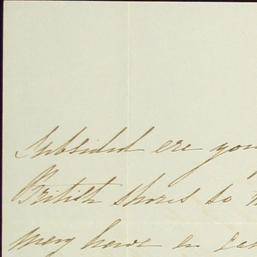 Subsided ere you
British shores so
may have